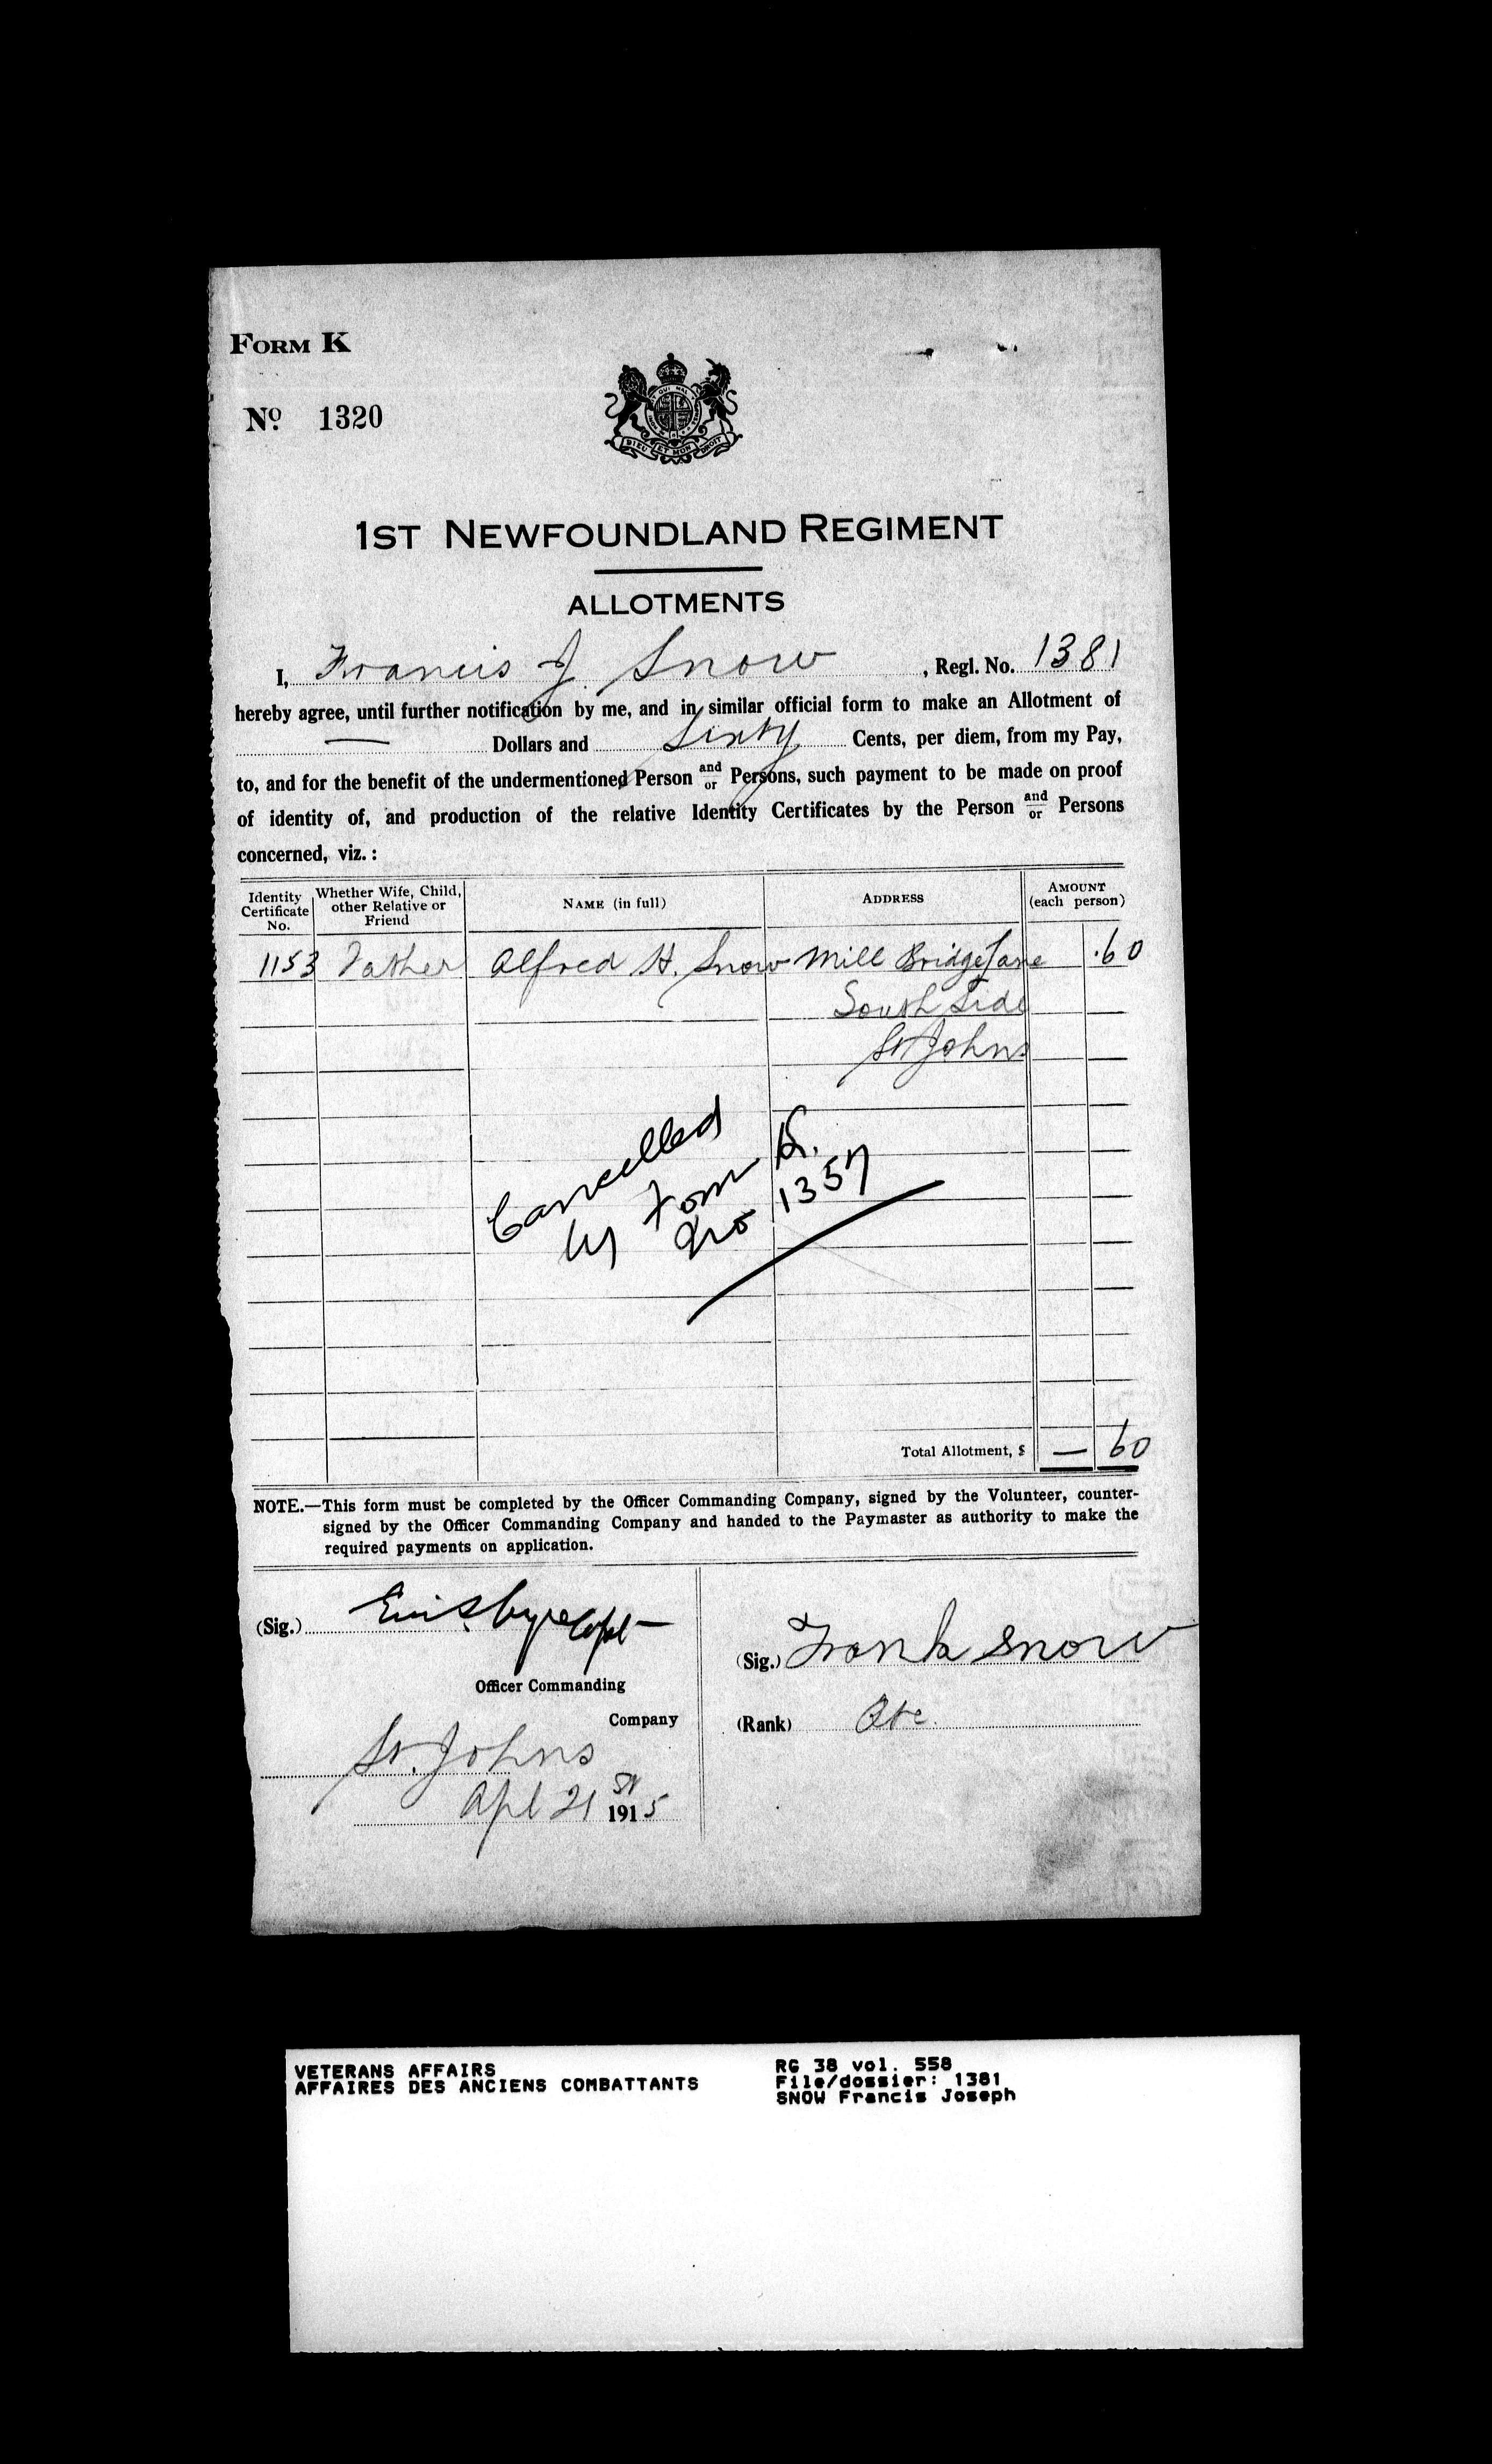 FORM K
No. 1320
DIEU ET MON DROIT
1ST NEWFOUNDLAND REGIMENT
ALLOTMENTS
I, Francis J. Snow, Regl. No. 1381
hereby agree, until further notification by me, and in similar official form to make an Allotment of
— Dollars and Sixty Cents, per diem, from my Pay,
to, and for the benefit of the undermentioned Person and/or Persons, such payment to be made on proof
of identity of, and production of the relative Identity Certificates by the Person and/or Persons
concerned, viz. :
Identity Certificate No. Whether Wife, Child, other Relative or Friend NAME (in full) ADDRESS AMOUNT (each person)
1153 Father Alfred H. Snow Mill Bridge Lane .60
South Side
St Johns
Cancelled
by Form K.
No 1357
Total Allotment, $ — 60
NOTE.—This form must be completed by the Officer Commanding Company, signed by the Volunteer, counter-
signed by the Officer Commanding Company and handed to the Paymaster as authority to make the
required payments on application.
(Sig.) Capt
Officer Commanding
Company
(Sig.) Frank Snow
(Rank) Pte.
St. Johns
Apl 21st 1915
VETERANS AFFAIRS
AFFAIRES DES ANCIENS COMBATTANTS
RG 38 vol. 558
File/dossier: 1381
SNOW Francis Joseph